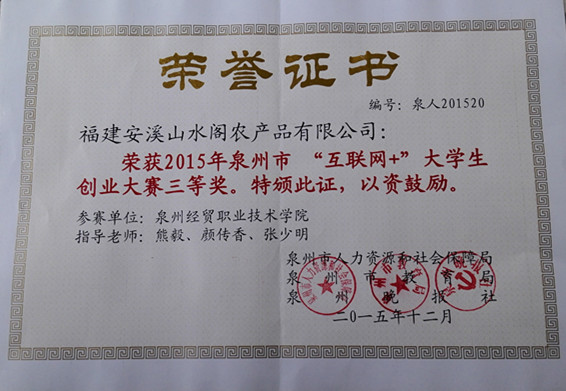 荣誉证书
编号：泉人201520
福建安溪山水阁农产品有限公司：
荣获2015年泉州市“互联网+”大学生
创业大赛三等奖。特颁此证，以资鼓励。
参赛单位：泉州经贸职业技术学院
指导老师：熊毅、颜传香、张少明
泉州市人力资源和社会保障局
泉州市教育局
泉州晚报社
二〇一五年十二月